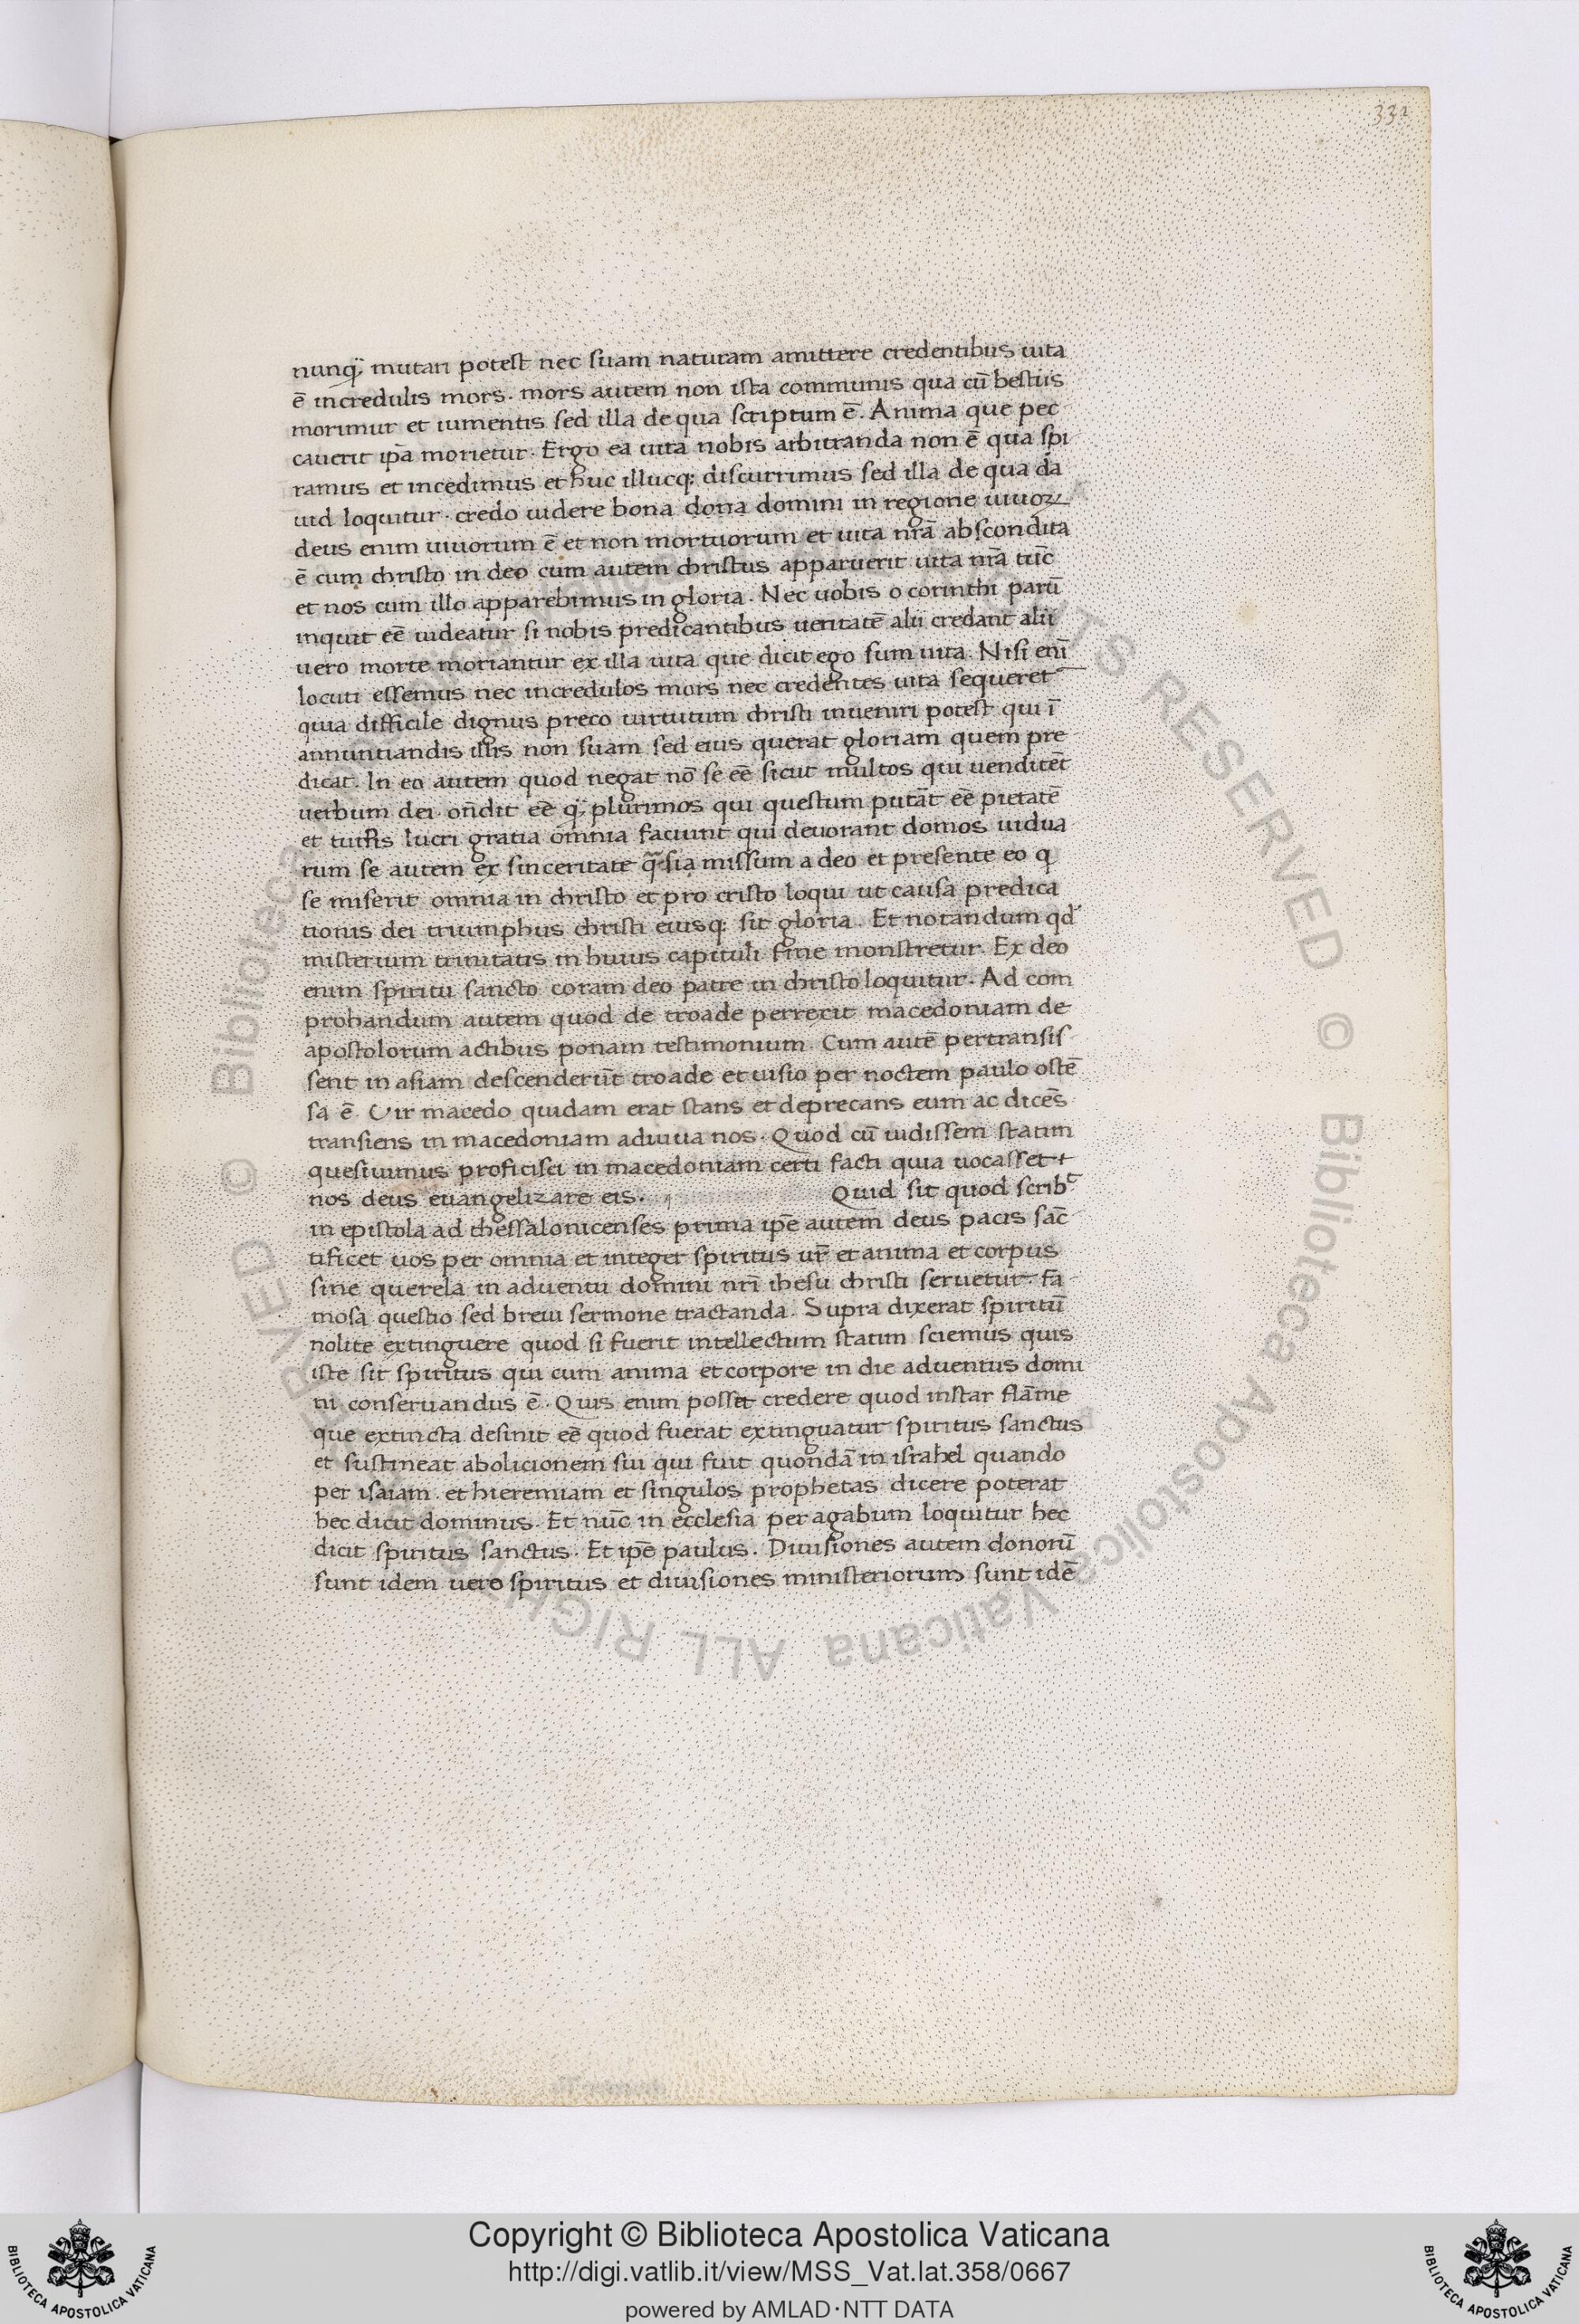 332
nunq̃ mutari potest nec suam naturam amittere credentibus uita
ē incredulis mors. mors autem non ista communis qua cū bestiis
morimur et iumentis sed illa de qua scriptum ē. Anima que pec
cauerit ip̄a morietur. Ergo ea uita nobis arbitranda non ē qua spi
ramus et incedimus et huc illucq; discurrimus sed illa de qua da
uid loquitur. credo uidere bona dona domini in regione uiuoꝝ
deus enim uiuorum ē et non mortuorum et uita nr̄a abscondita
ē cum christo in deo cum autem christus apparuerit uita nr̄a tūc
et nos cum illo apparebimus in gloria. Nec uobis o corinthi parū
inquit eē uideatur si nobis predicantibus ueritatē alii credant alii
uero morte moriantur ex illa uita que dicit ego sum uita. Nisi eni̅
locuti essemus nec incredulos mors nec credentes uita sequeret
quia difficile dignus preco uirtutum christi inueniri potest qui ī
annuntiandis illis non suam sed eius querat gloriam quem pre
dicat. In eo autem quod negat nō se eē sicut multos qui uenditēt
uerbum dei. on̄dit eē q̃plurimos qui questum putāt eē pietatē
et turpis lucri gratia omnia faciunt qui deuorant domos uidua
rum se autem ex sinceritate q̃si a missum a deo et presente eo q
se miserit omnia in christo et pro cristo loqui ut causa predica
tionis dei triumphus christi eiusq; sit gloria. Et notandum qd
misterium trinitatis in huius capituli fine monstretur. Ex deo
enim spiritu sancto coram deo patre in christo loquitur. Ad com
probandum autem quod de troade perrexit macedoniam de
apostolorum actibus ponam testimonium. Cum autē pertransis
sent in asiam descenderūt troade et uisio per noctem paulo ostē
sa ē. Vir macedo quidam erat stans et deprecans eum ac dicēs
transiens in macedoniam adiuua nos. Quod cū uidissem statim
quesiuimus proficisci in macedoniam certi facti quia uocasset
nos deus euangelizare eis. Quid sit quod scrib
in epistola ad thessalonicenses prima ip̄e autem deus pacis sāc
tificet uos per omnia et integer spiritus ur̄ et anima et corpus
sine querela in aduentu domini nr̄i ihesu christi seruetur. fa
mosa questio sed breui sermone tractanda. Supra dixerat spiritū
nolite extinguere quod si fuerit intellectum statim sciemus quis
iste sit spiritus qui cum anima et corpore in die aduentus domi
ni conseruandus ē. Quis enim posset credere quod instar flāme
que extincta desinit eē quod fuerat extinguatur spiritus sanctus
et sustineat abolicionem sui qui fuit quondā in israhel quando
per isaiam et hieremiam et singulos prophetas dicere poterat
hec dicit dominus. Et nūc in ecclesia per agabum loquitur hec
dicit spiritus sanctus. Et ip̄e paulus. Diuisiones autem donorū
sunt idem uero spiritus et diuisiones ministeriorum sunt idē
© Biblioteca Apostolica Vaticana ALL RIGHTS RESERVED © Biblioteca Apostolica Vaticana ALL RIGHTS RESERVED
BIBLIOTECA APOSTOLICA VATICANA
Copyright © Biblioteca Apostolica Vaticana
http://digi.vatlib.it/view/MSS_Vat.lat.358/0667
powered by AMLAD·NTT DATA
BIBLIOTECA APOSTOLICA VATICANA